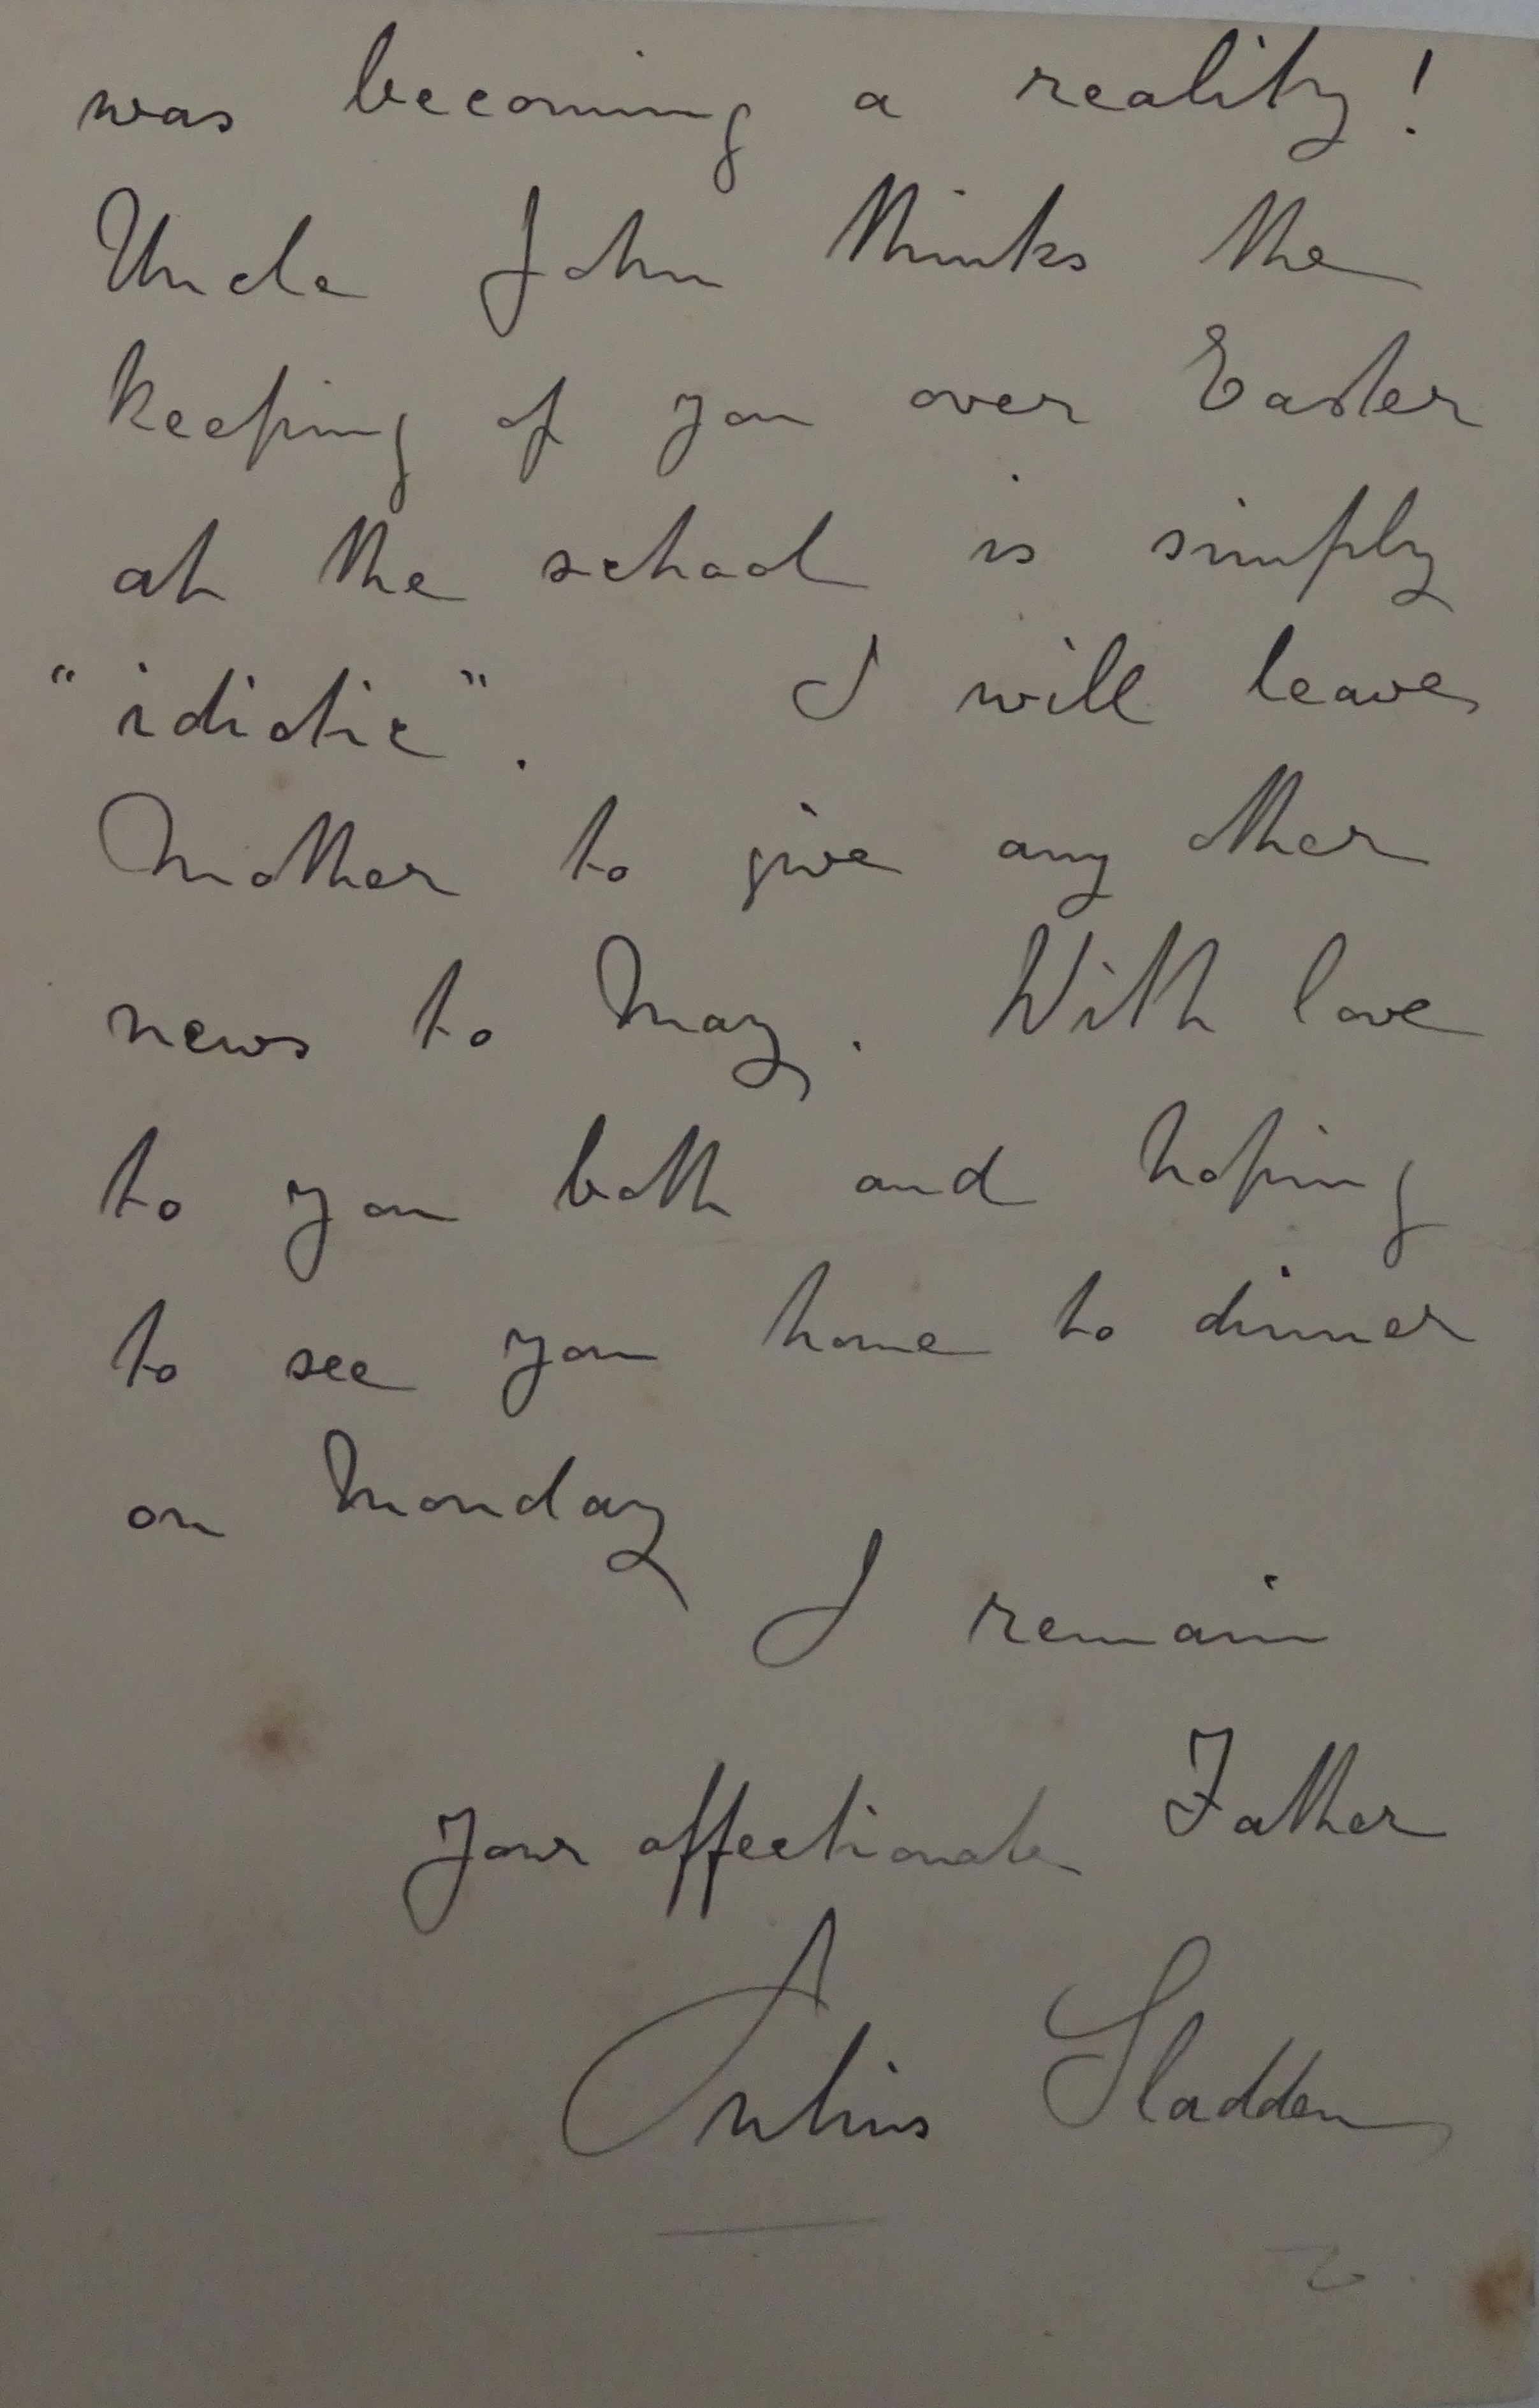 was becoming a reality!
Uncle John thinks the
keeping of you over Easter
at the school is simply
"idiotic". I will leave
Mother to give any other
news to May. With love
to you both and hoping
to see you home to dinner
on Monday
I remain
Your affectionate Father
Julius Sladden